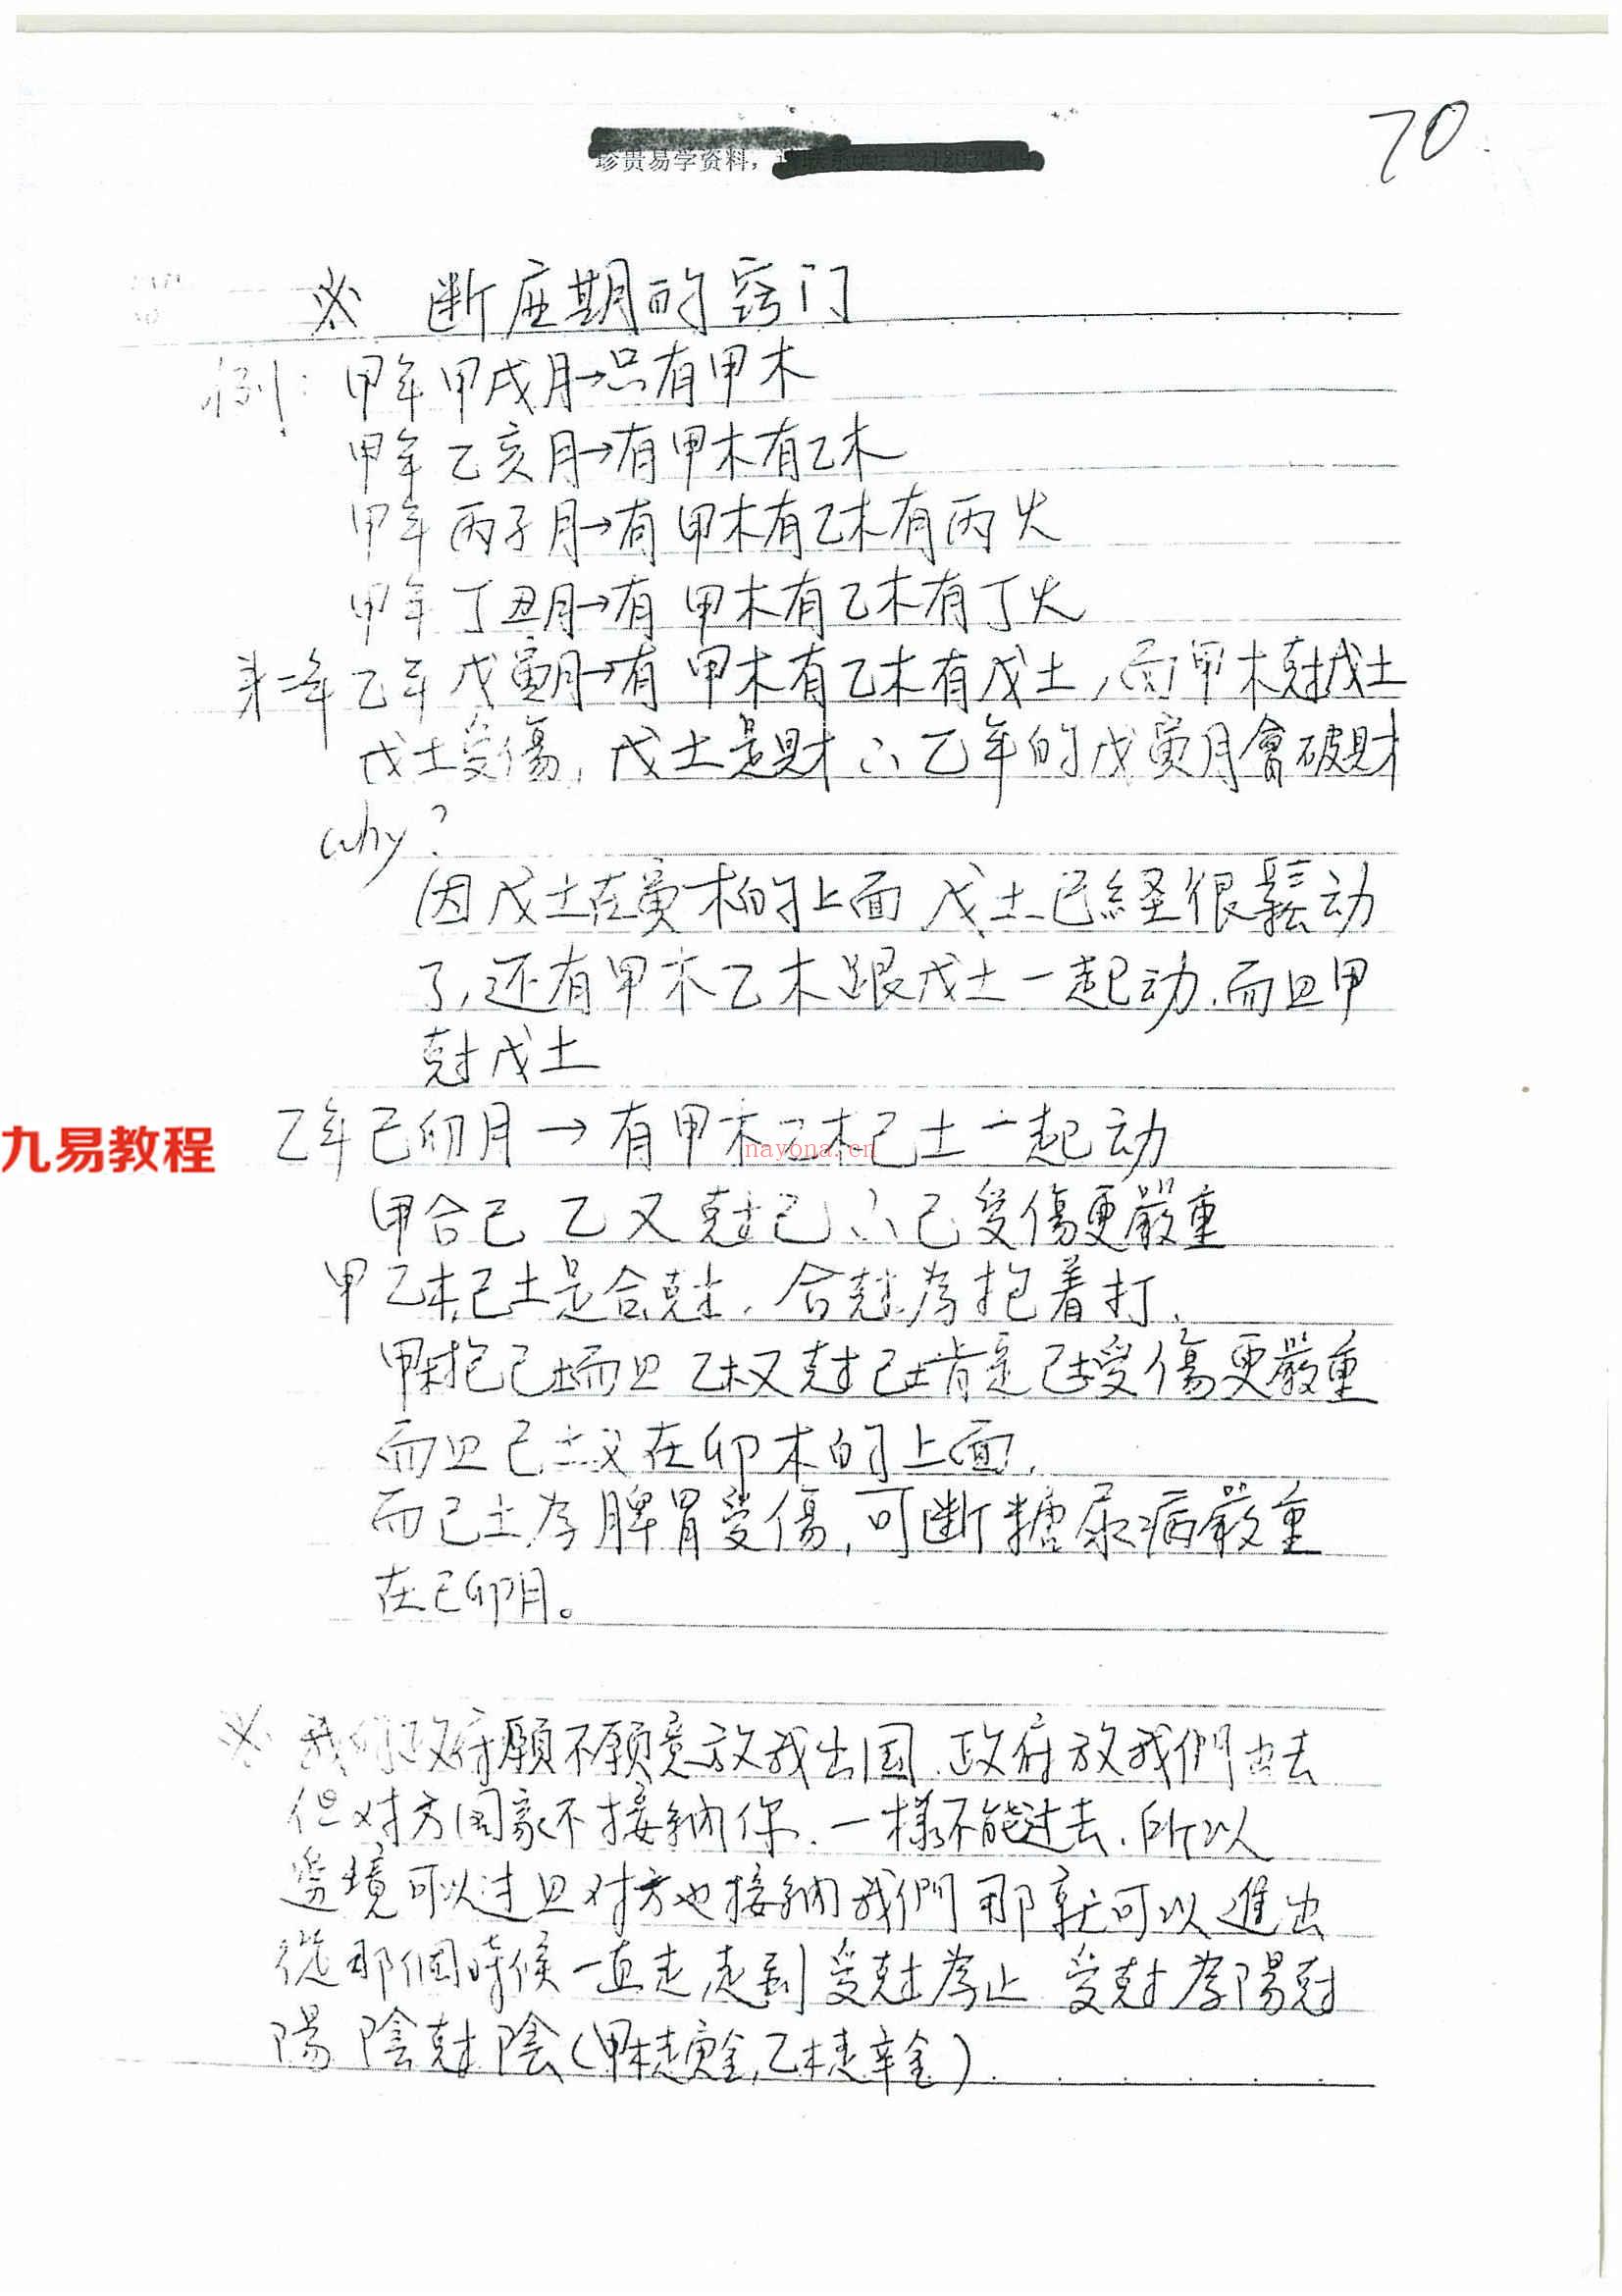 70
珍贵易学资料，
※ 断应期的窍门
例：甲年甲戌月→只有甲木
甲年乙亥月→有甲木有乙木
甲年丙子月→有甲木有乙木有丙火
甲年丁丑月→有甲木有乙木有丁火
第二年乙年戊寅月→有甲木有乙木有戊土，而甲木尅戊土
戊土受傷，戊土是財∴乙年的戊寅月會破財
why？
因戊土在寅木的上面戊土已経很鬆动
了，还有甲木乙木跟戊土一起动，而且甲
尅戊土
乙年己卯月→有甲木乙木己土一起动
九易教程
nayona.cn
甲合己乙又尅己∴己受傷更嚴重
甲乙木己土是合尅，合尅为抱着打，
甲木抱己土而且乙木又尅己土肯定己土受傷更嚴重
而且己土又在卯木的上面，
而己土为脾胃受傷，可断糖尿病嚴重
在己卯月。
※ 我们政府願不願意放我出国，政府放我們出去
但对方国家不接納你，一樣不能过去，所以
邊境可以过且对方也接納我們那就可以進出
從那個時候一直走，走到受尅为止 受尅为陽尅
陽 陰尅陰（甲木走庚金，乙木走辛金）